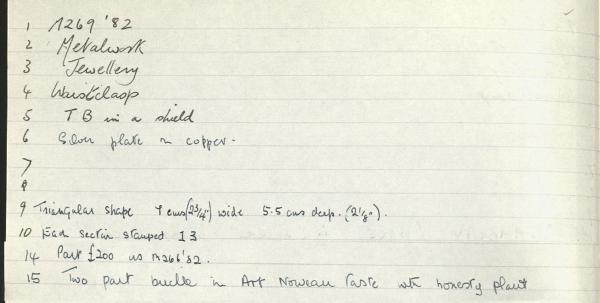 1 M269 '82
2 Metalwork
3 Jewellery
4 Waistclasp
5 TB in a shield
6 Silver plate on copper.
7
8
9 Triangular shape 7 cms (2¾") wide 5.5 cms deep. (2⅛").
10 Each section stamped 13
14 Part £200 as M266'82.
15 Two part buckle in Art Nouveau taste with honesty plant